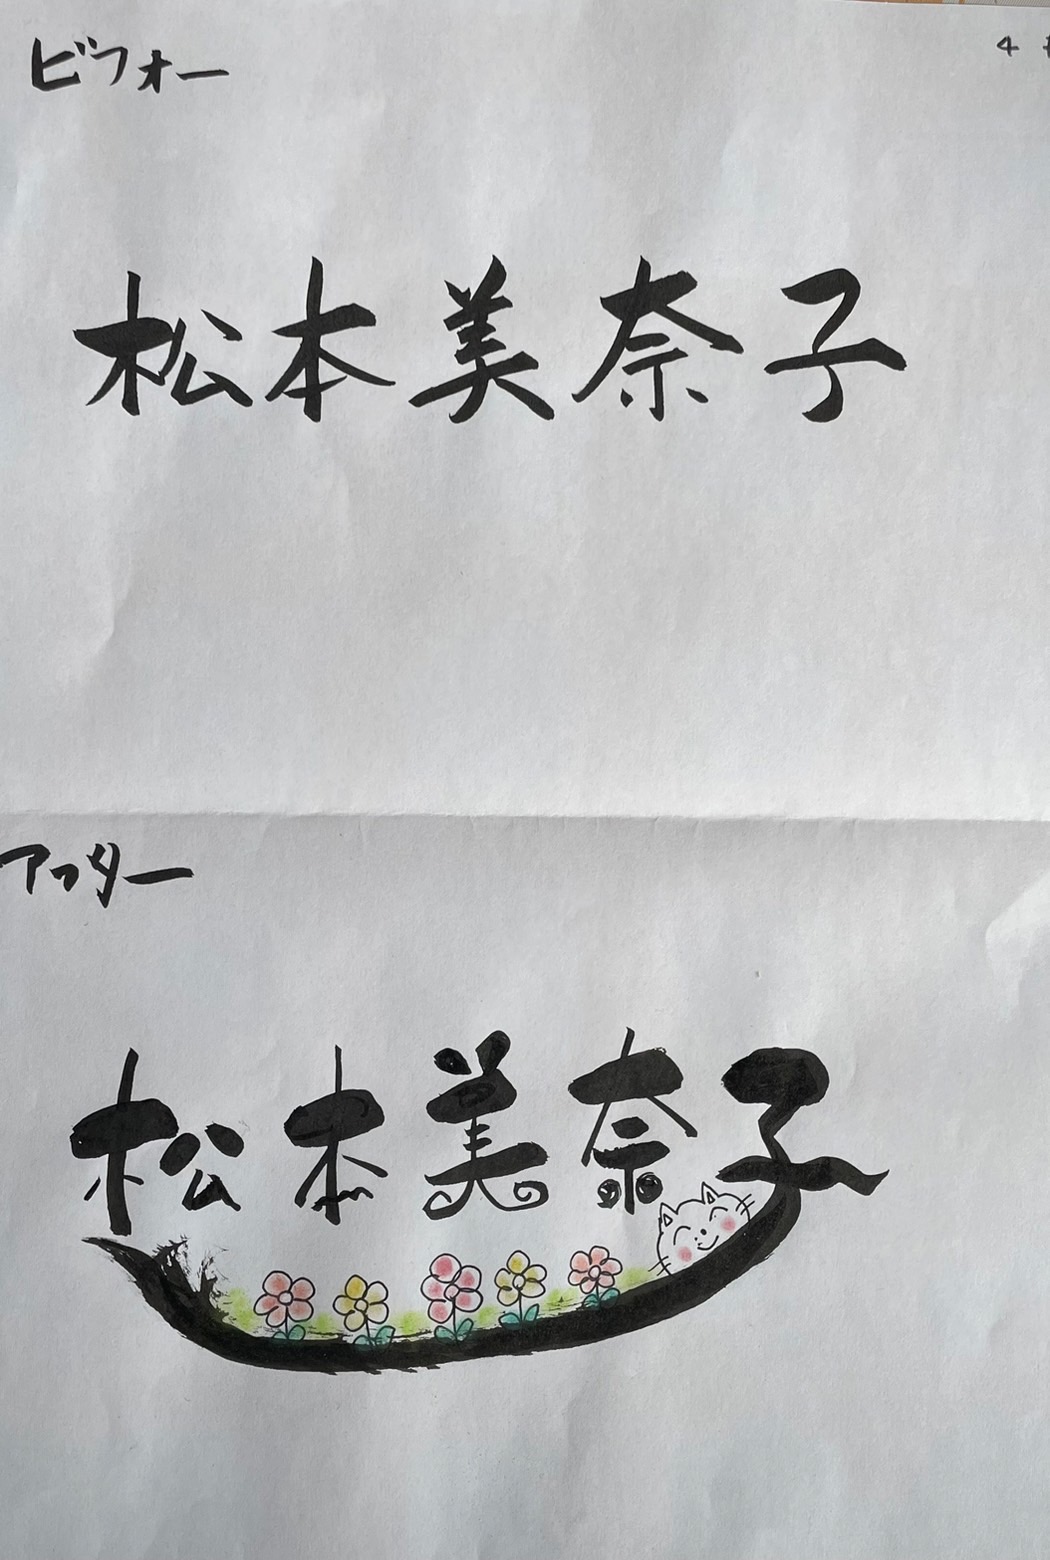 ビフォー
4
松本美奈子
アフター
松本美奈子